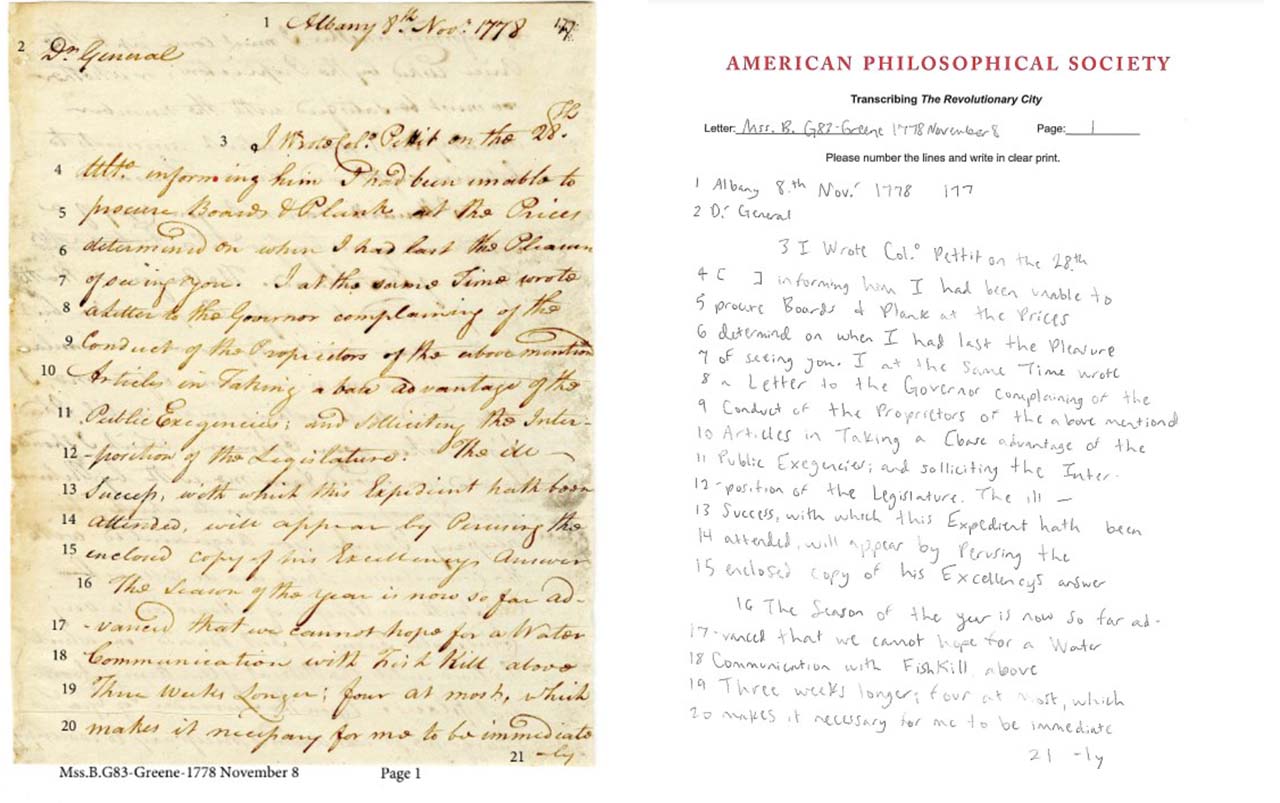 1 Albany 8th Nov.r 1778 177
2 Dr General
3 I Wrote Col.o Pettit on the 28.th
4 Ult.o informing him I had been unable to
5 procure Boards & Plank at the Prices
6 determined on when I had last the Pleasure
7 of seeing you. I at the same Time wrote
8 a Letter to the Governor complaining of the
9 Conduct of the Proprietors of the above mention
10 Articles in Taking a base advantage of the
11 Public Exegencies; and solliciting the Inter-
12 -position of the Legislature. The ill —
13 Success, with which this Expedient hath been
14 attended, will appear by Perusing the
15 enclosed copy of his Excellencys Answer
16 The Season of the year is now so far ad-
17 -vanced that we cannot hope for a Water
18 Communication with Fish Kill above
19 Three Weeks Longer; four at most, which
20 makes it necessary for me to be immediate
21 -ly-
Mss.B.G83-Greene-1778 November 8 Page 1
AMERICAN PHILOSOPHICAL SOCIETY
Transcribing The Revolutionary City
Letter: Mss. B. G83-Greene 1778 November 8 Page: 1
Please number the lines and write in clear print.
1 Albany 8.th Nov.r 1778 177
2 D.r General
3 I Wrote Col.o Pettit on the 28.th
4 [ ] informing him I had been unable to
5 procure Boards & Plank at the Prices
6 determind on when I had last the Pleasure
7 of seeing you. I at the Same Time wrote
8 a Letter to the Governor complaining of the
9 Conduct of the Proprietors of the above mentiond
10 Articles in Taking a Cbase advantage of the
11 Public Exegencies; and solliciting the Inter-
12 -position of the Legislature. The ill —
13 Success, with which this Expedient hath been
14 attended, will appear by Perusing the
15 enclosed copy of his Excellencys answer
16 The Season of the year is now so far ad-
17 -vanced that we cannot hope for a Water
18 Communication with FishKill above
19 Three weeks longer; four at most, which
20 makes it necessary for me to be immediate
21 -ly